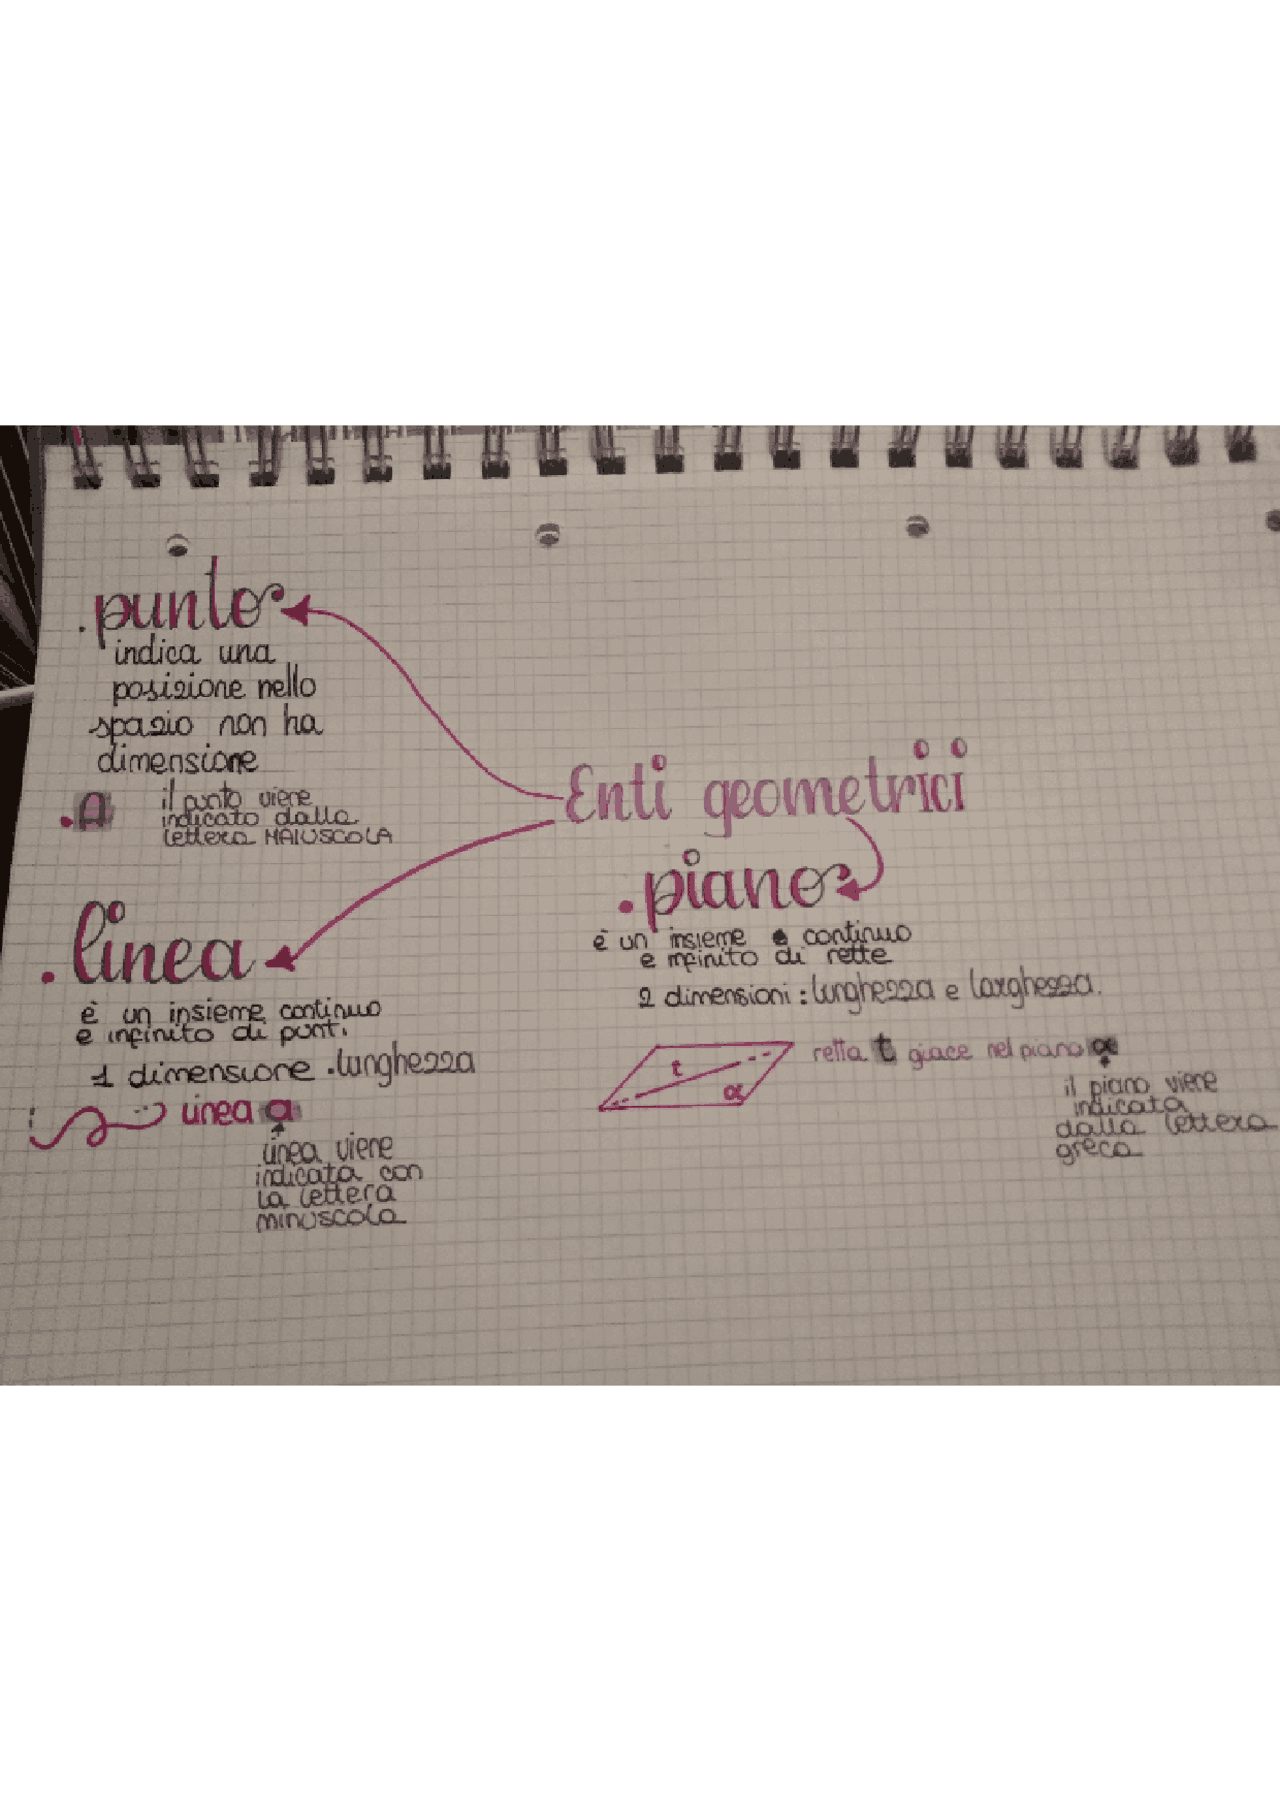 .punto
indica una
posizione nello
spazio non ha
dimensione
.A
il punto viene
indicato dalla
lettera MAIUSCOLA
Enti geometrici
.linea
è un insieme continuo
e infinito di punti.
1 dimensione .lunghezza
linea a
linea viene
indicata con
la lettera
minuscola
.piano
è un insieme continuo
e infinito di rette
2 dimensioni : lunghezza e larghezza.
t
α
retta t giace nel piano α
il piano viene
indicata
dalla lettera
greca